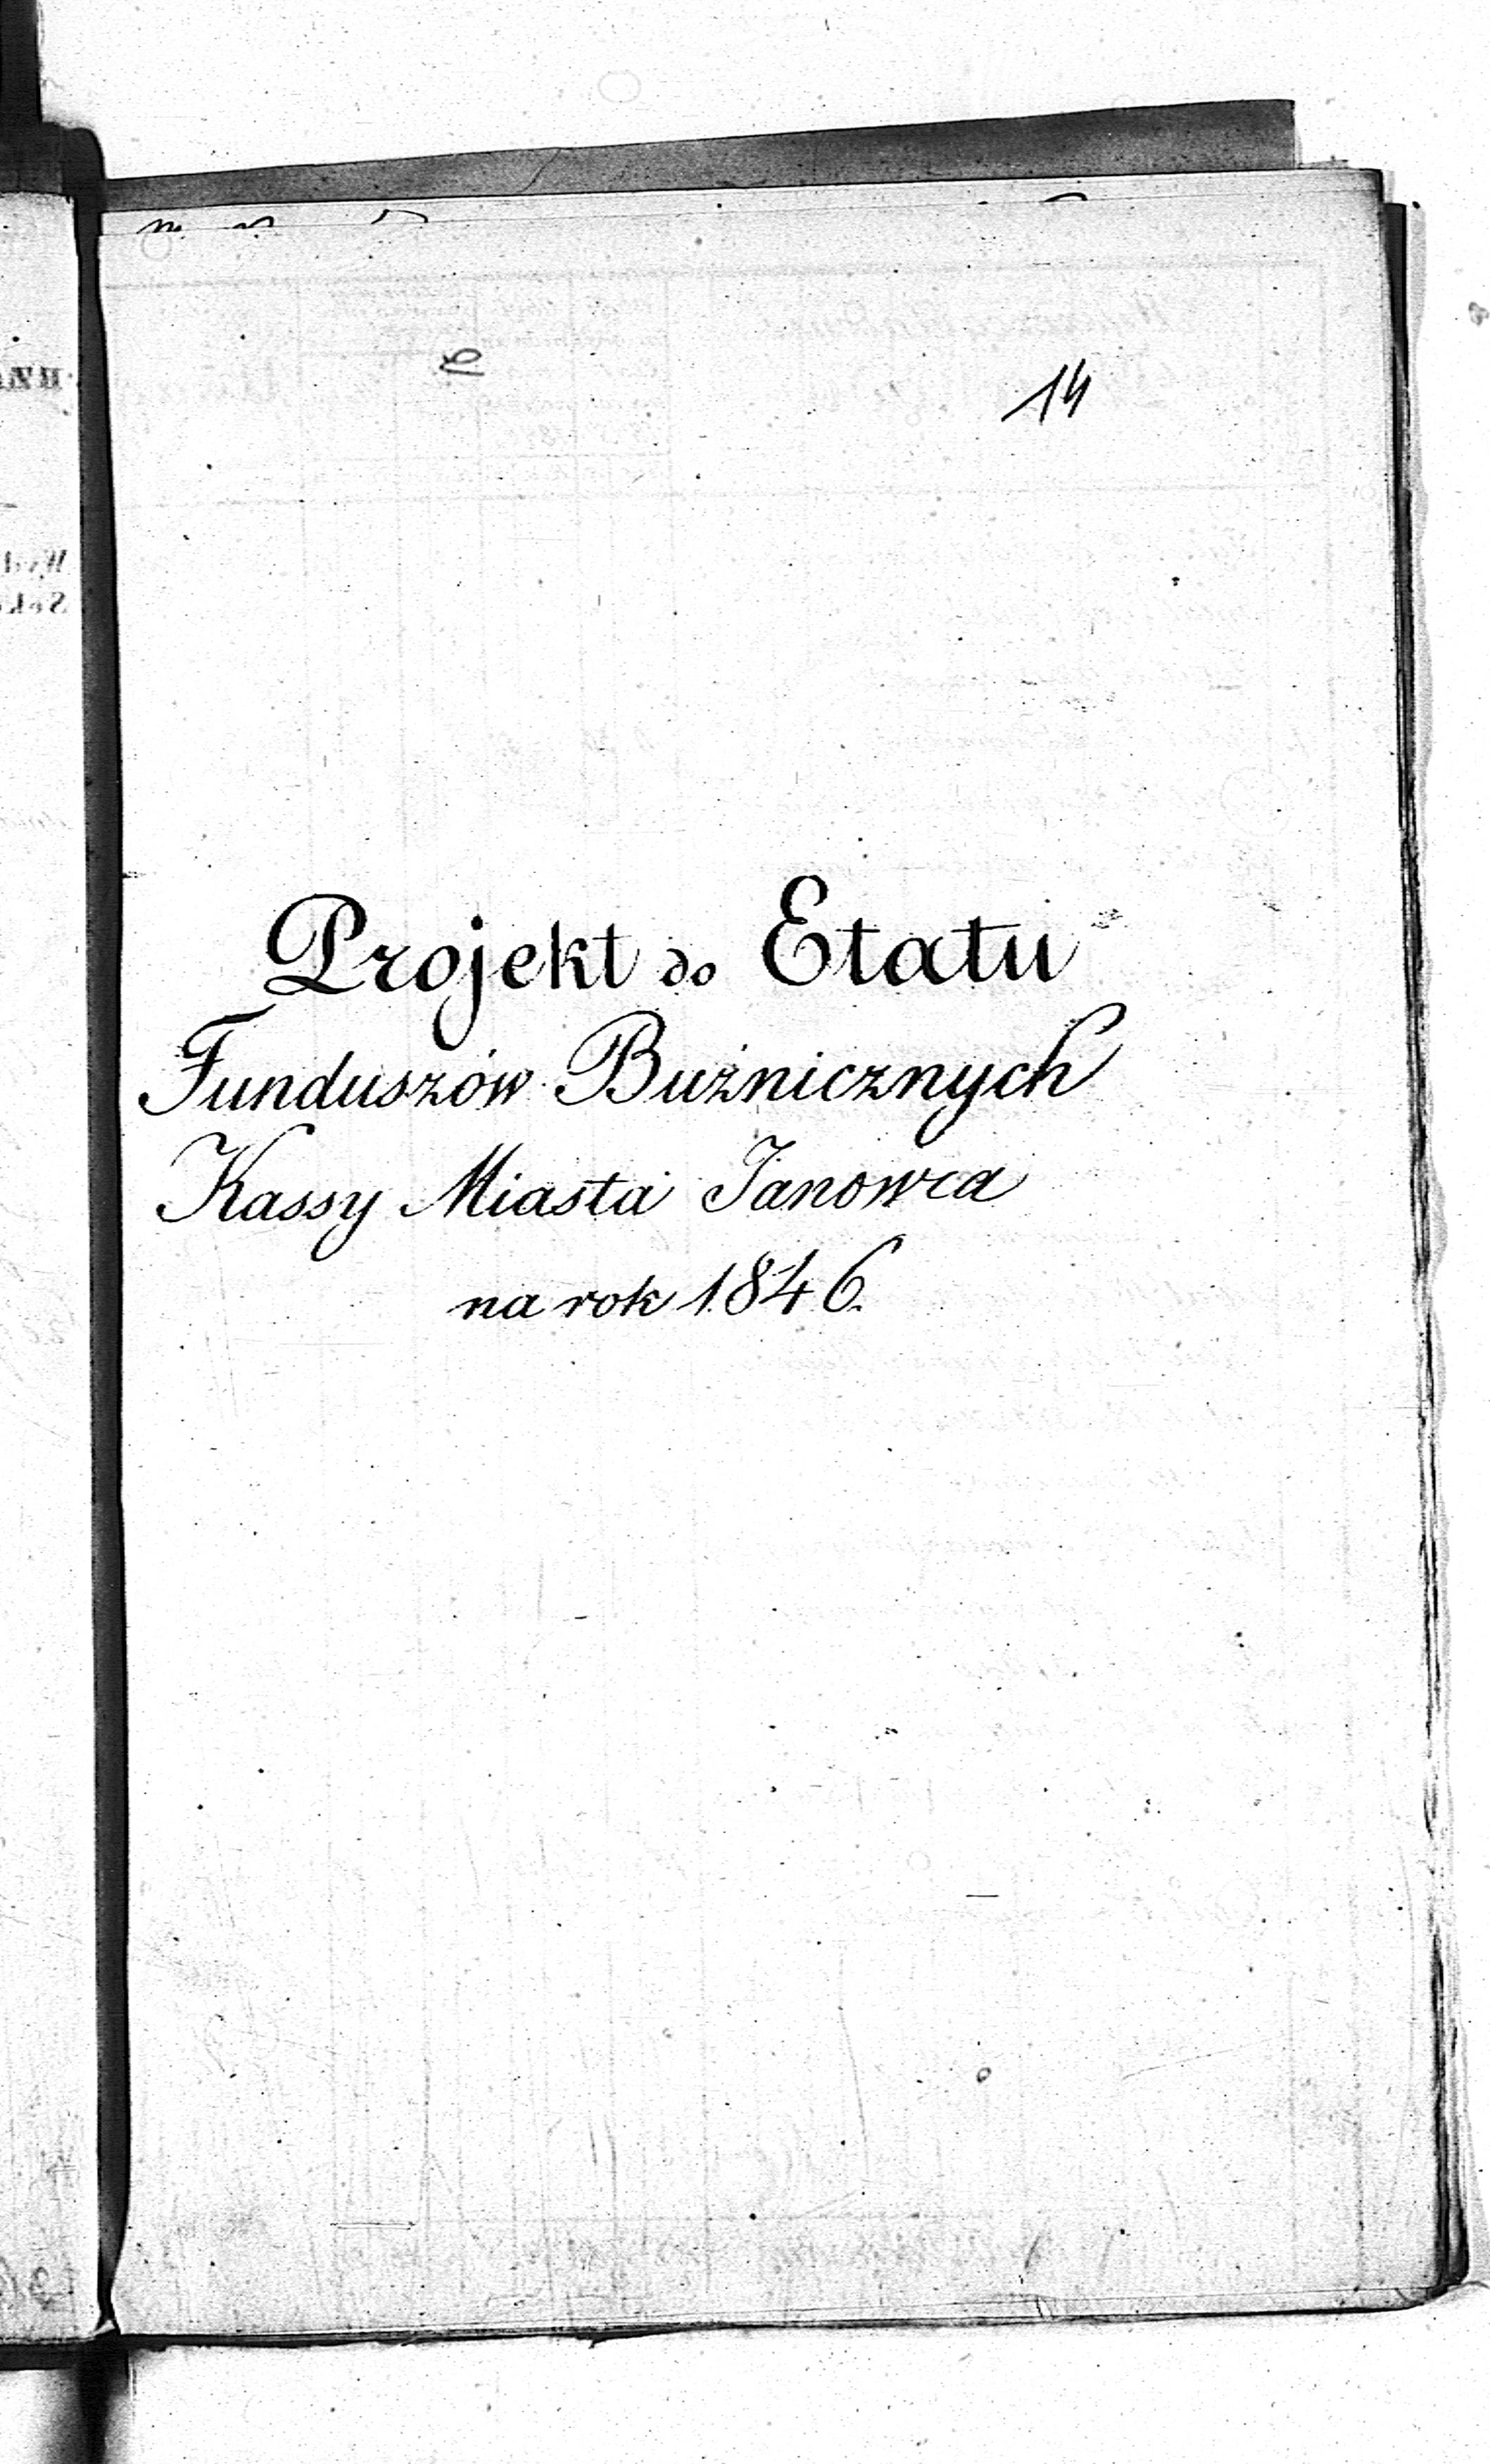 14
Projekt do Etatu
Funduszów Bużnicznych
Kassy Miasta Janowca
na rok 1846.